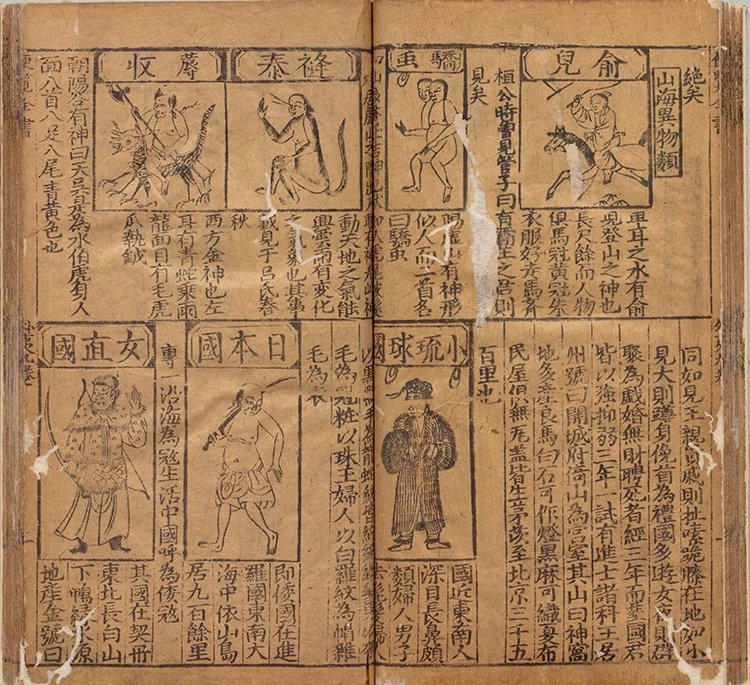 絕矣
山海異物類
俞兒
卑耳之水有俞
兒登山之神也
長尺餘而人物
俱馬冠黃冠朱
衣服好走馬齊
桓公時曾見管子曰有霸王之君則
見矣
驕虫
山有神形
似人而二首名
曰驕虫
泰
動天地之氣能
興雲雨有變化
之氣象也其事
或見于呂氏春
秋
蓐收
西方金神也左
耳有青蛇乘兩
龍面目有毛虎
爪執鉞
朝陽谷有神曰天吳是為水伯虎身人
面八首八足八尾青黃色也
同如見王親貴戚則扯嗉跪膝在地如小
見大則蹲身俛首為禮國多遊女夜則群
聚為戲婚無財聘死者經三年而葬國君
皆以強抑弱三年一試有進士諸科王名
州號曰開城府倚山為宮室其山曰神窩
地多產良馬白石可作燈黑麻可織夏布
民屋俱無瓦蓋皆生茅茨至北京三千五
百里也
小琉球國
國近東南人
深目長鼻頗
類婦人男子
毛為冠粧以珠玉婦人以白羅紋為帽雜
毛為衣
日本國
即倭國在進
羅國東南大
海中依山島
居九百餘里
專沿海為寇生活中國呼為倭寇
女直國
其國在契丹
東北長白山
下鴨綠水原
地產金號曰